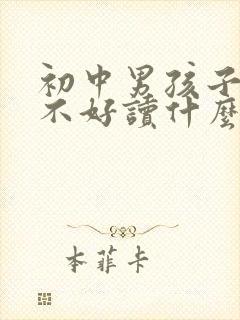 初中男孩子
不好讀什麼
本菲卡